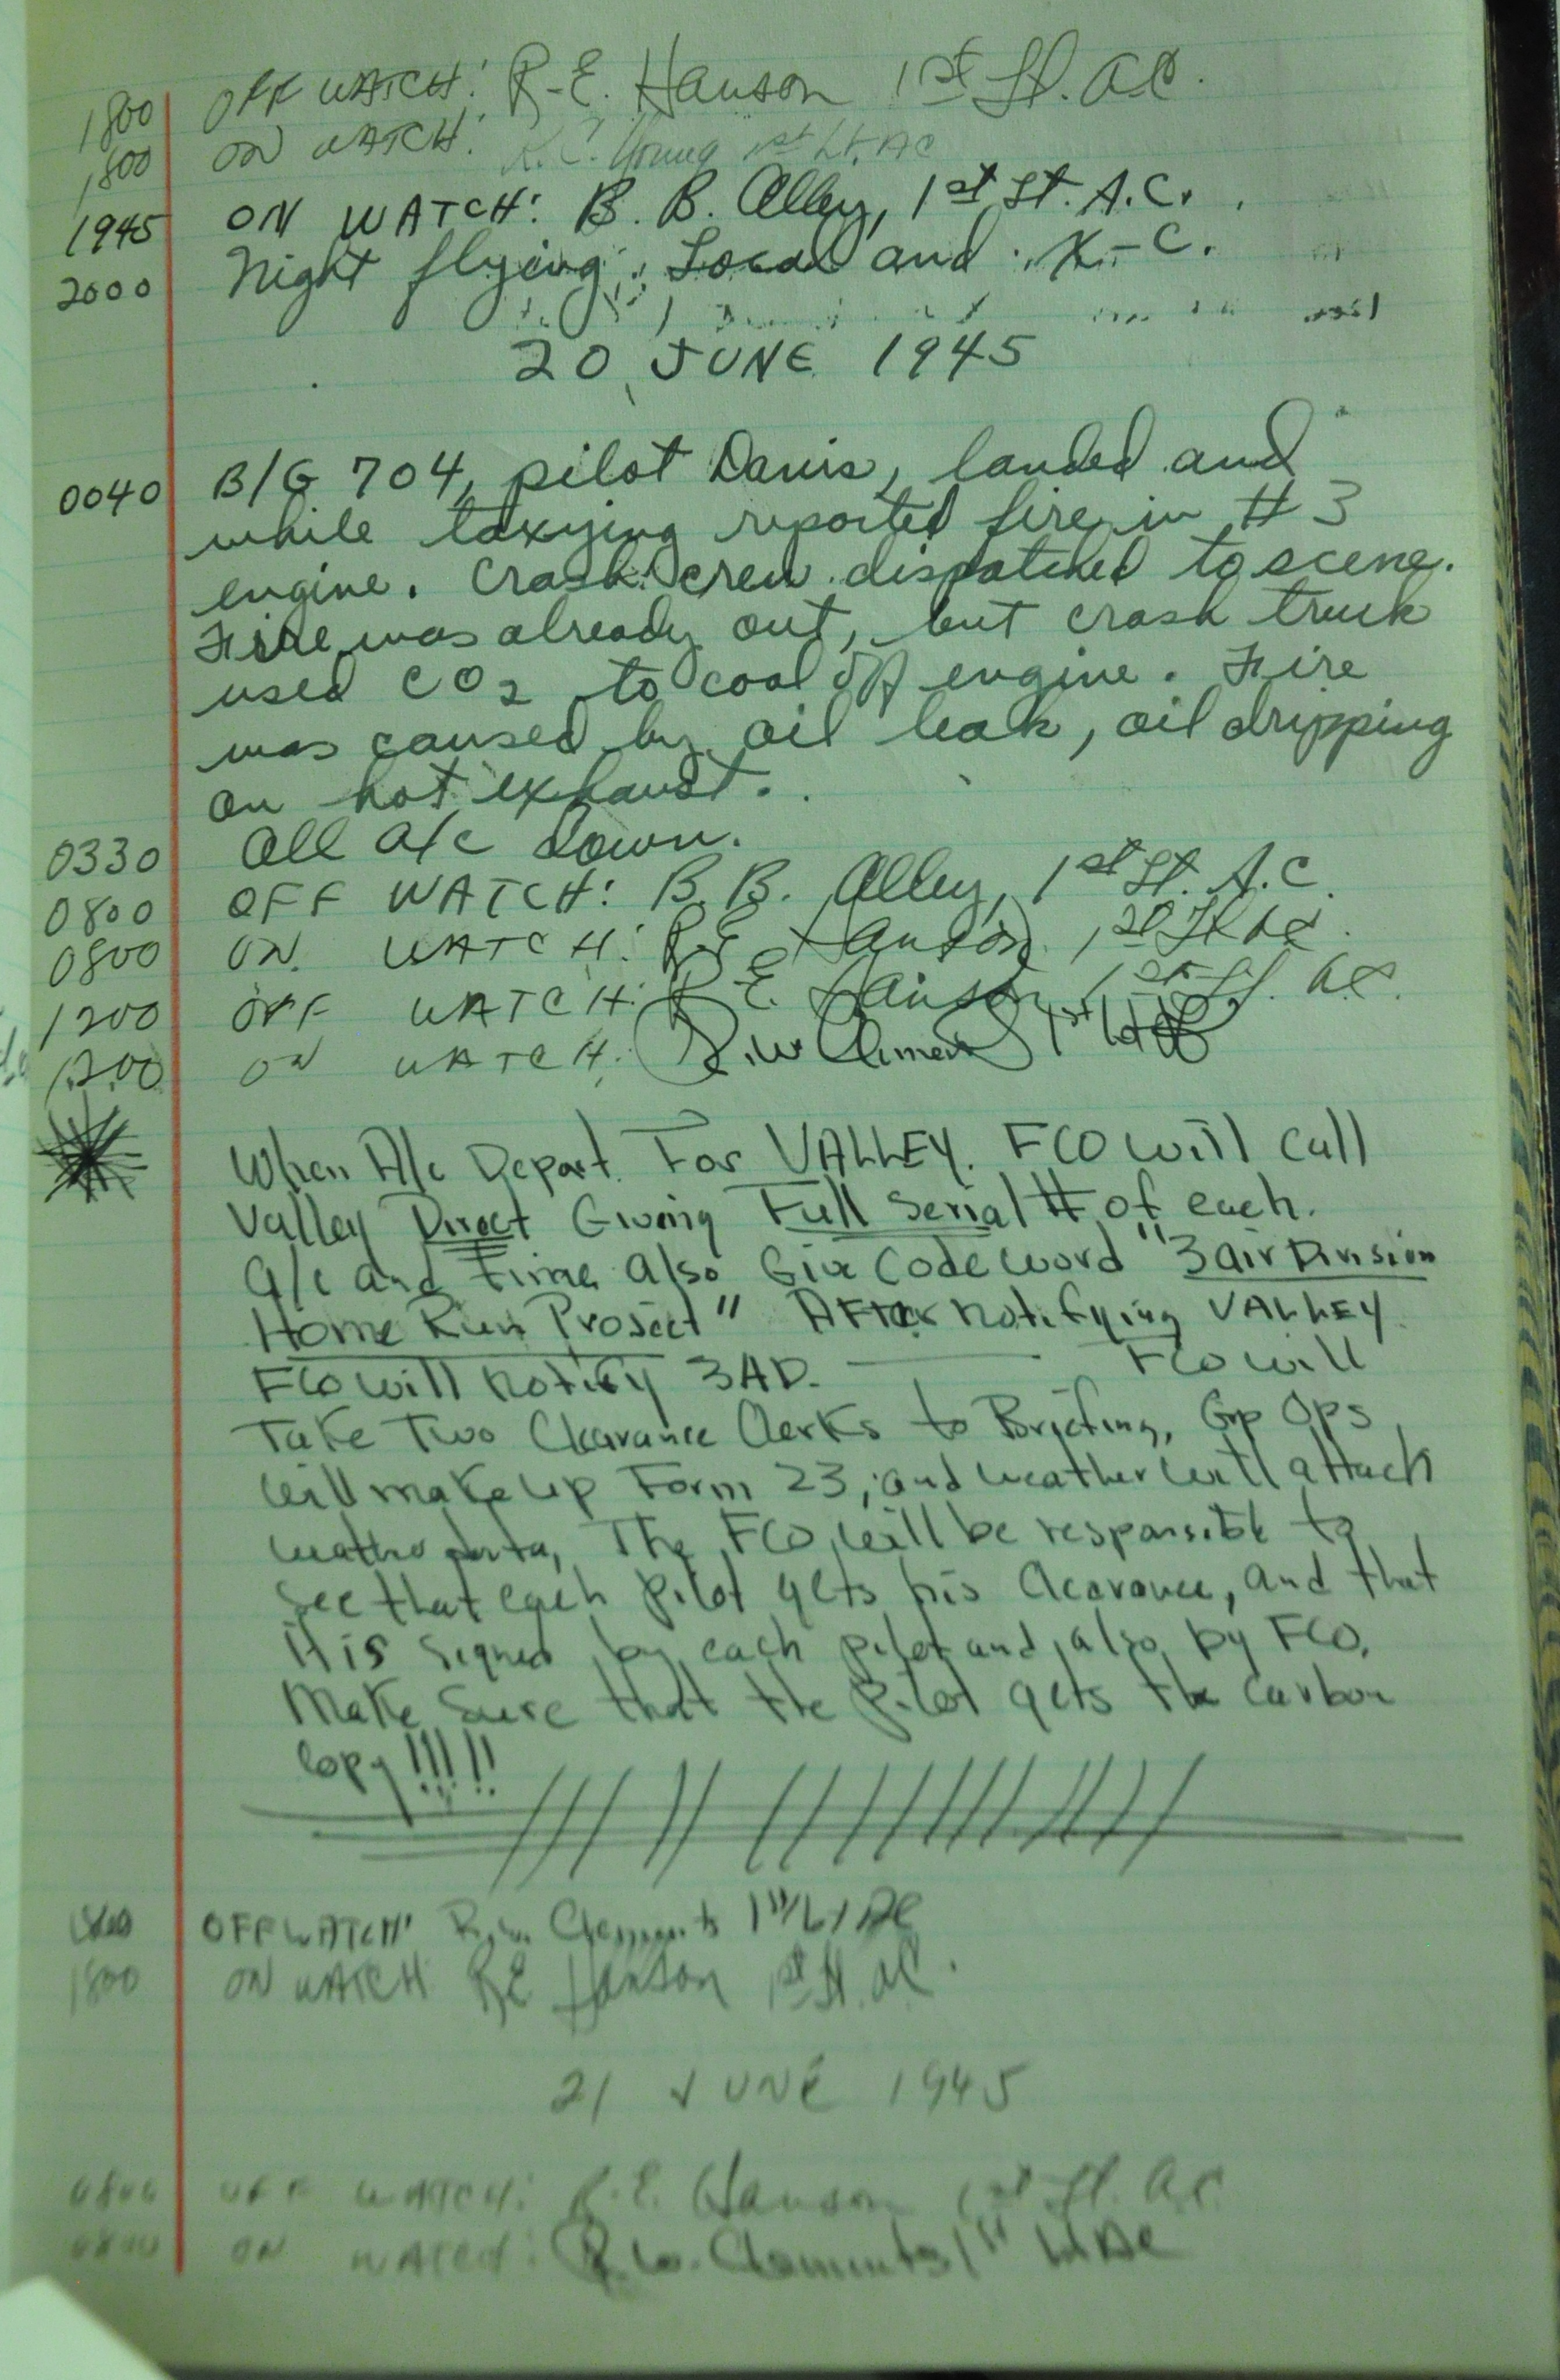 1800 OFF WATCH: R-E. Hanson 1st Lt. AC.
1800 ON WATCH: R.C. Young 1st Lt. AC
1945 ON WATCH: B. B. Alley, 1st Lt. A.C.
2000 Night flying: Local and X-C.
20 JUNE 1945
0040 B/G 704, pilot Davis, landed and
while taxying reported fire in #3
engine. Crash crew dispatched to scene.
Fire was already out, but crash truck
used CO2 to cool off engine. Fire
was caused by oil leak, oil dripping
on hot exhaust.
0330 All a/c down.
0800 OFF WATCH: B. B. Alley, 1st Lt. A.C.
0800 ON WATCH: R-E Hanson 1st Lt AC.
1200 OFF WATCH: R-E. Hanson 1st Lt. AC.
1200 ON WATCH: R.W. Clements 1st Lt AC
When A/c Depart For VALLEY. FCO will call
Valley Direct Giving Full Serial # of each
a/c and time Also Give Code word "3 air Division
Home Run Project" After notifying VALLEY
FCO will notify 3AD. — FCO will
Take Two Clearance Clerks to Briefing, Grp Ops
will make up Form 23, and weather will attach
weather data, The FCO will be responsible to
see that each pilot gets his Clearance, and that
it is signed by each pilot and also by FCO.
Make Sure that the pilot gets the carbon
copy!!!!!
1800 OFF WATCH: R.W. Clements 1st Lt AC
1800 ON WATCH RE Hanson 1st Lt. AC.
21 JUNE 1945
0800 OFF WATCH: R.E. Hanson 1st Lt. AC.
0800 ON WATCH: R.W. Clements 1st Lt AC